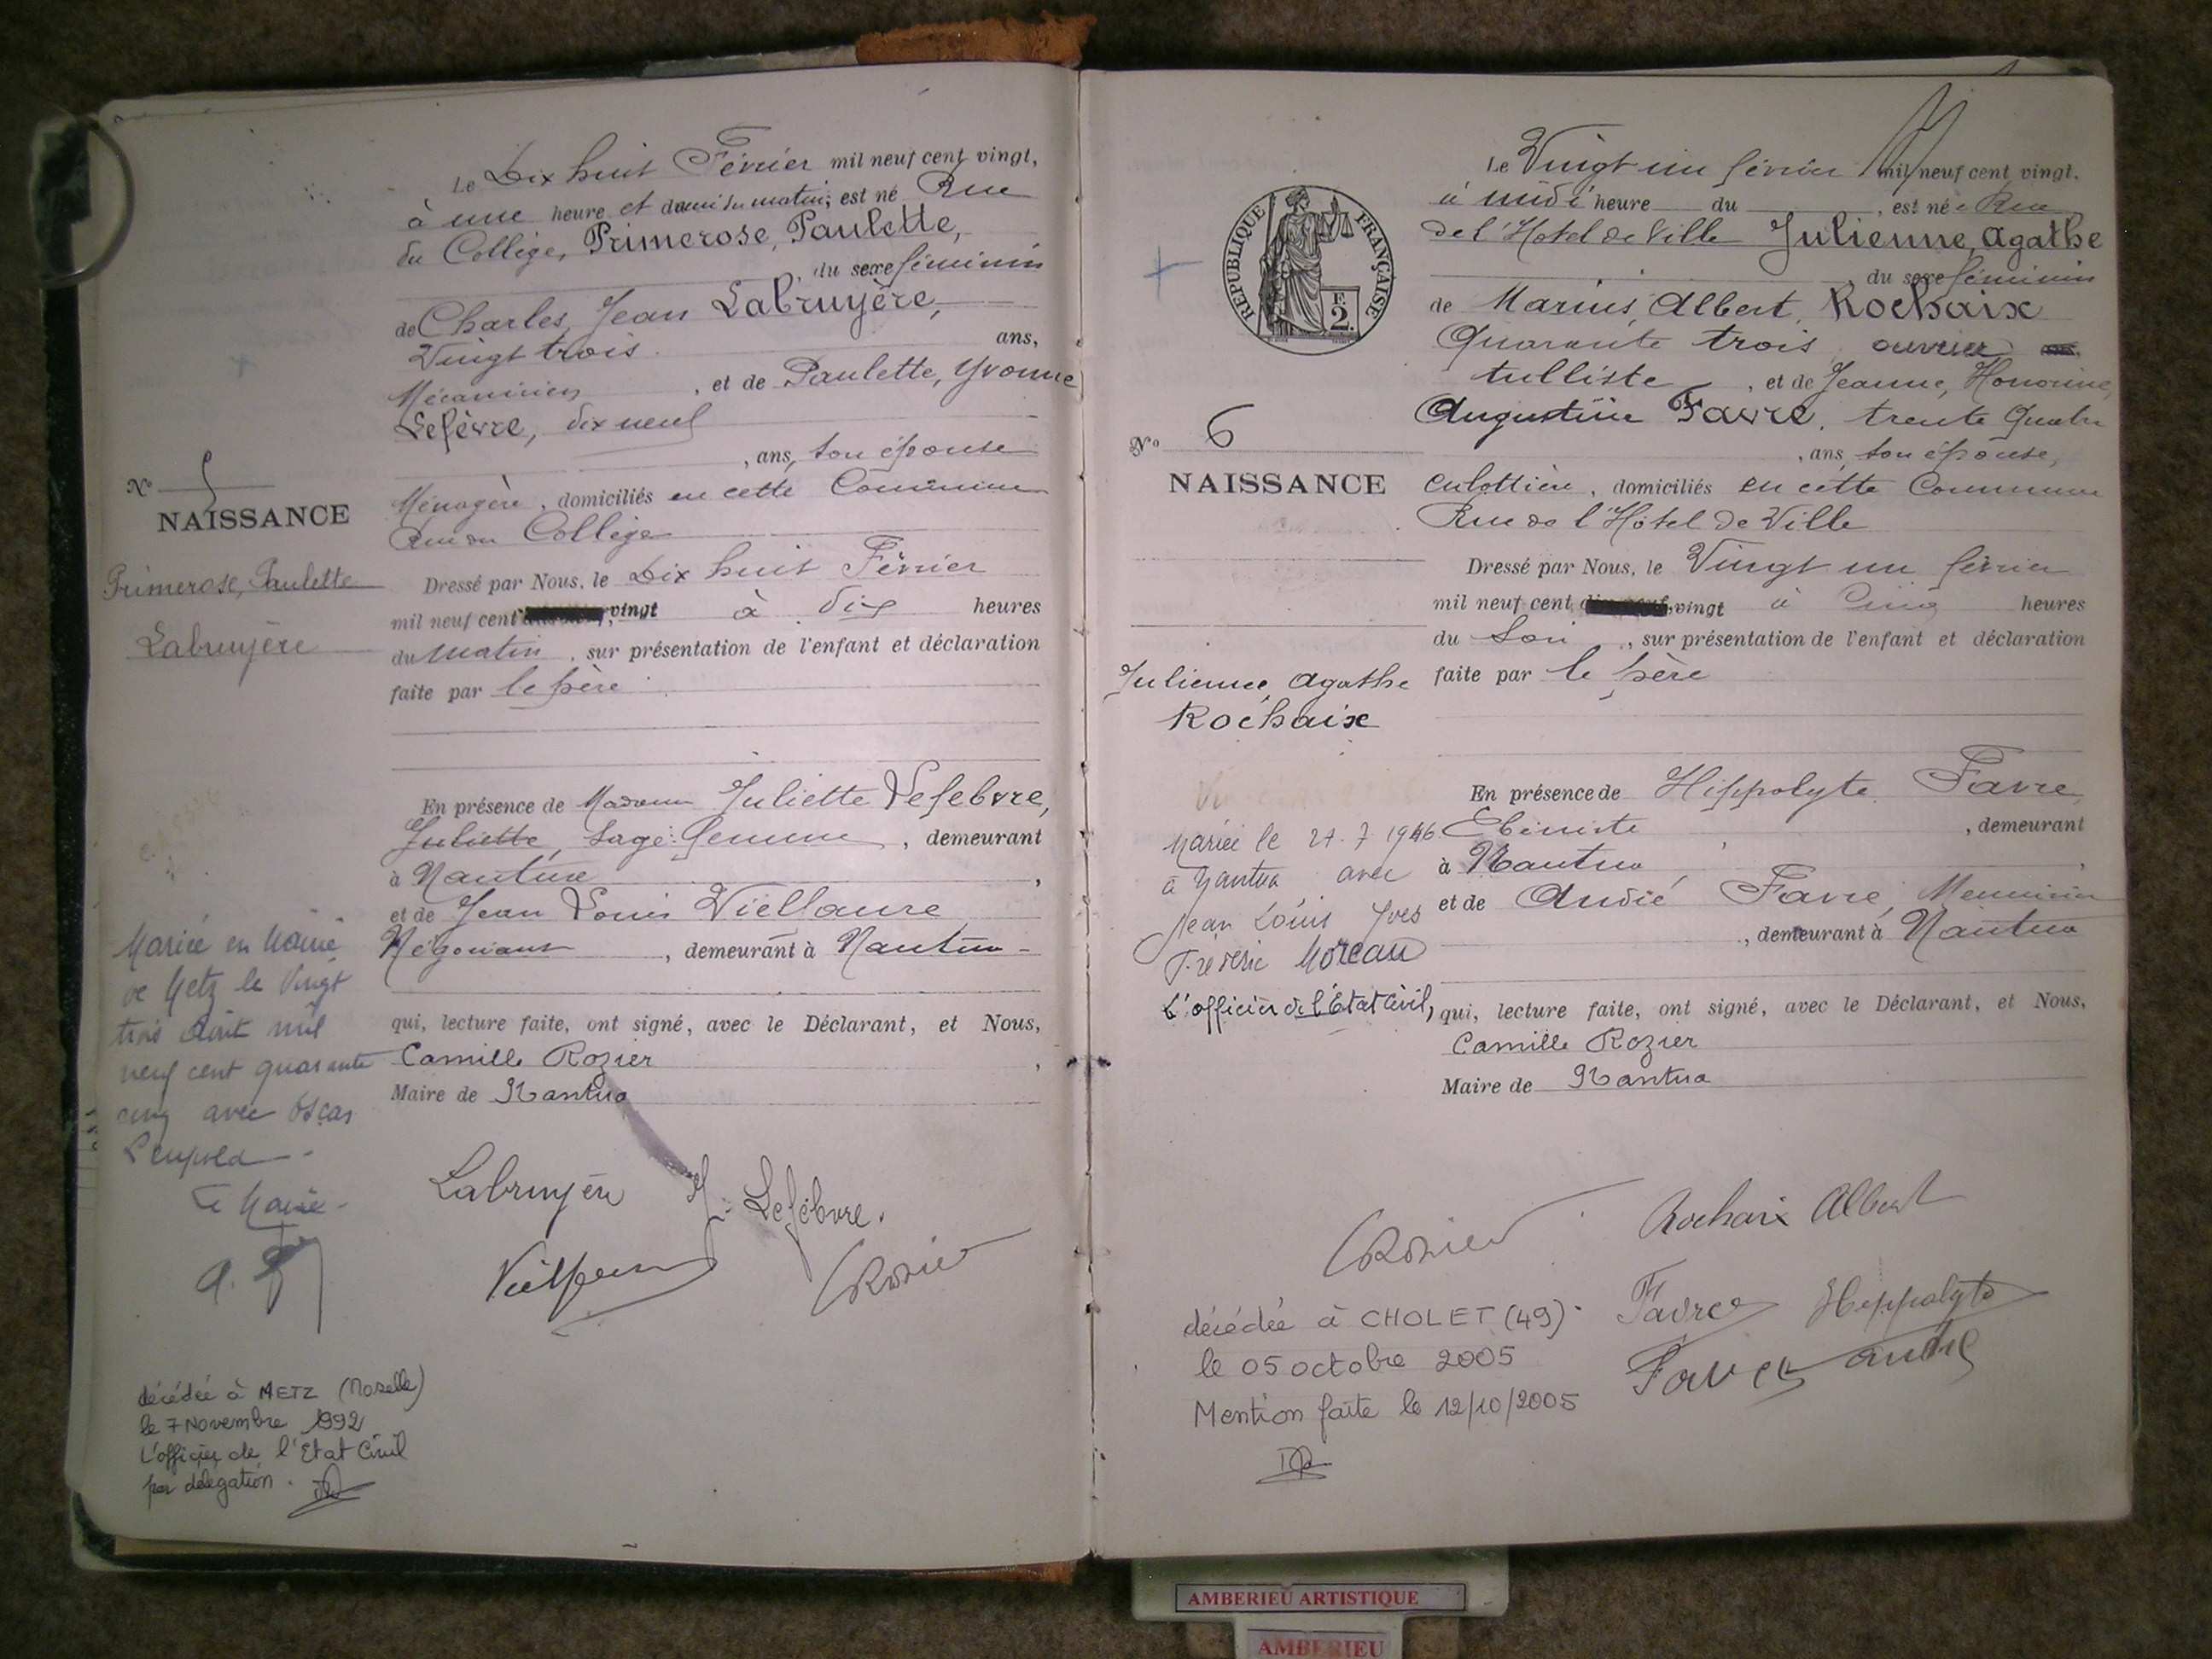 Le Dix huit Février mil neuf cent vingt,
à une heure et demi du matin, est né Rue
du Collège, Primerose, Paulette,
, du sexe féminin
de Charles, Jean Labruyère,
Vingt trois ans,
Mécanicien, et de Paulette, Yvonne
Lefèvre, dix neuf
, ans, son épouse
Ménagère, domiciliés en cette Commune
Rue du Collège
Nº 5
NAISSANCE
Primerose, Paulette
Labruyère
Dressé par Nous, le Dix huit Février
mil neuf cent vingt à dix heures
du matin, sur présentation de l'enfant et déclaration
faite par le père
En présence de Madame Juliette Lefebvre,
Juliette, Sage-femme, demeurant
à Nantua,
et de Jean Louis Viellaure
Négociant, demeurant à Nantua
qui, lecture faite, ont signé, avec le Déclarant, et Nous,
Camille Rozier,
Maire de Nantua
Mariée en Mairie
de Metz le Vingt
trois Août mil
neuf cent quarante
cinq avec Oscar
Leupold
Le Maire
Labruyère J. Lefebvre.
CRozier
décédée à METZ (Moselle)
le 7 Novembre 1992
L'officier de l'Etat Civil
par délégation.
RÉPUBLIQUE FRANÇAISE
F.
2.
Le Vingt un février mil neuf cent vingt.
à midi heure du , est née Rue
de l'Hotel de Ville Julienne, Agathe
, du sexe féminin
de Marius, Albert, Rochaix
Quarante trois, ouvrier
tulliste, et de Jeanne, Honorine,
Augustine Favre, trente Quatre
, ans, son épouse,
culottière, domiciliés en cette Commune
Rue de l'Hôtel de Ville
Nº 6
NAISSANCE
Julienne, Agathe
Rochaix
Dressé par Nous, le Vingt un février
mil neuf cent vingt à Cinq heures
du Soir, sur présentation de l'enfant et déclaration
faite par le père
En présence de Hippolyte Favre,
Ebéniste, demeurant
à Nantua,
et de André Favre, Menuisier
, demeurant à Nantua
qui, lecture faite, ont signé, avec le Déclarant, et Nous,
Camille Rozier
Maire de Nantua
Mariée le 27.7 1946
à Nantua avec
Jean Louis Yves
Frédéric Moreau
L'officier de l'Etat Civil,
CRozier Rochaix Albert
Favre Hippolyte
Favre André
décédée à CHOLET (49)
le 05 octobre 2005
Mention faite le 12/10/2005
AMBERIEU ARTISTIQUE
AMBERIEU